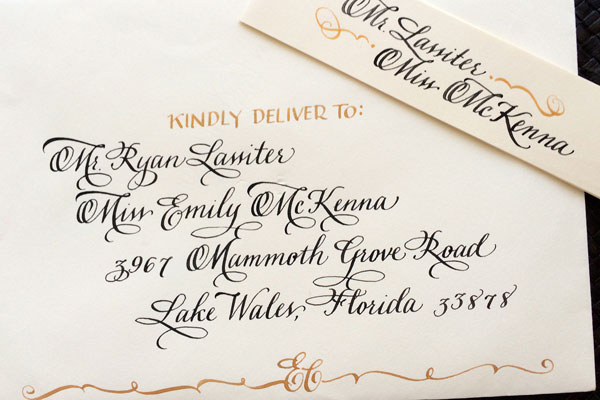 Mr. Lassiter
Miss McKenna
KINDLY DELIVER TO:
Mr. Ryan Lassiter
Miss Emily McKenna
3967 Mammoth Grove Road
Lake Wales, Florida 33878